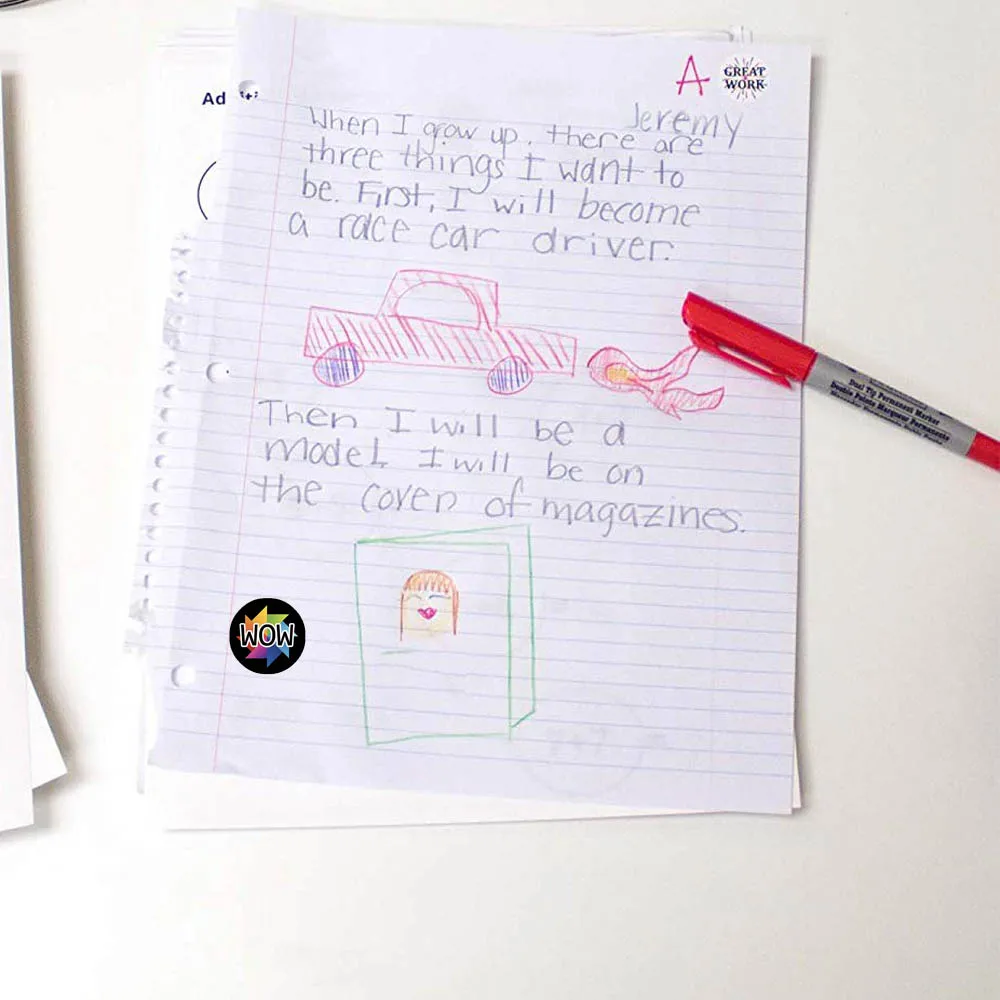 A
GREAT
WORK
Ad
Jeremy
When I grow up, there are
three things I want to
be. First, I will become
a race car driver.
Then I will be a
model. I will be on
the cover of magazines.
WOW
Dual Tip Permanent Marker
Double Pointe Marqueur Permanente